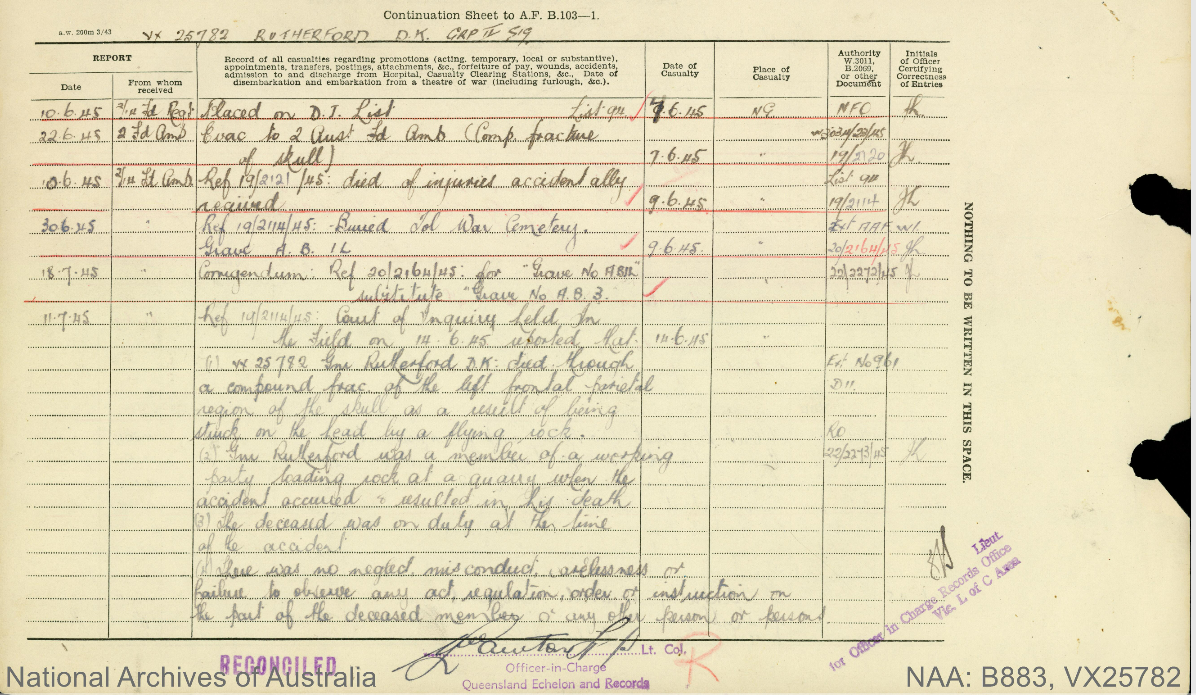 Continuation Sheet to A.F. B.103—1.
a.w. 200m 3/43 VX 25782 RUTHERFORD D.K. GRP II SIG
REPORT
Date
From whom received
Record of all casualties regarding promotions (acting, temporary, local or substantive),
appointments, transfers, postings, attachments, &c., forfeiture of pay, wounds, accidents,
admission to and discharge from Hospital, Casualty Clearing Stations, &c., Date of
disembarkation and embarkation from a theatre of war (including furlough, &c.).
Date of Casualty
Place of Casualty
Authority W.3011, B.2069, or other Document
Initials of Officer Certifying Correctness of Entries
10.6.45 2/14 Fd Regt Placed on D.I. List List 94 7.6.45 NG NFO
22.6.45 2 Fd Amb Evac to 2 Aust Fd Amb (Comp. fracture W3034/22/45
of skull) 7.6.45 " 19/2120
10.6.45 2/14 Fd Amb Ref 19/2121/45: died of injuries accidentally List 94
received 9.6.45 19/2114
30.6.45 " Ref 19/2114/45: Buried Jol War Cemetery. Ext AAF W1.
Grave A. B. 1L 9.6.45. " 20/2164/45
18.7.45 " Corrigendum: Ref 20/2164/45: for "Grave No AB1L" 22/2272/45
substitute "Grave No A.B.3.
11.7.45 " Ref 19/2114/45: Court of Inquiry held In
the Field on 14.6.45 reported that 14.6.45 "
(1) VX 25782 Gnr Rutherford D.K: died through Ext No 961
a compound frac. of the left frontal parietal D11
region of the skull as a result of being
struck on the head by a flying rock. RO
(2) Gnr Rutherford was a member of a working 22/2273/45
party loading rock at a quarry when the
accident occurred & resulted in his death
(3) The deceased was on duty at the time
of the accident
(4) There was no neglect, misconduct, carelessness or
failure to observe any act, regulation, order or instruction on
the part of the deceased member or any other person or persons.
NOTHING TO BE WRITTEN IN THIS SPACE.
Lieut.
for Officer in Charge Records Office
Vic. L of C Area
RECONCILED
Lt. Col.
R
Officer-in-Charge
Queensland Echelon and Records
National Archives of Australia
NAA: B883, VX25782